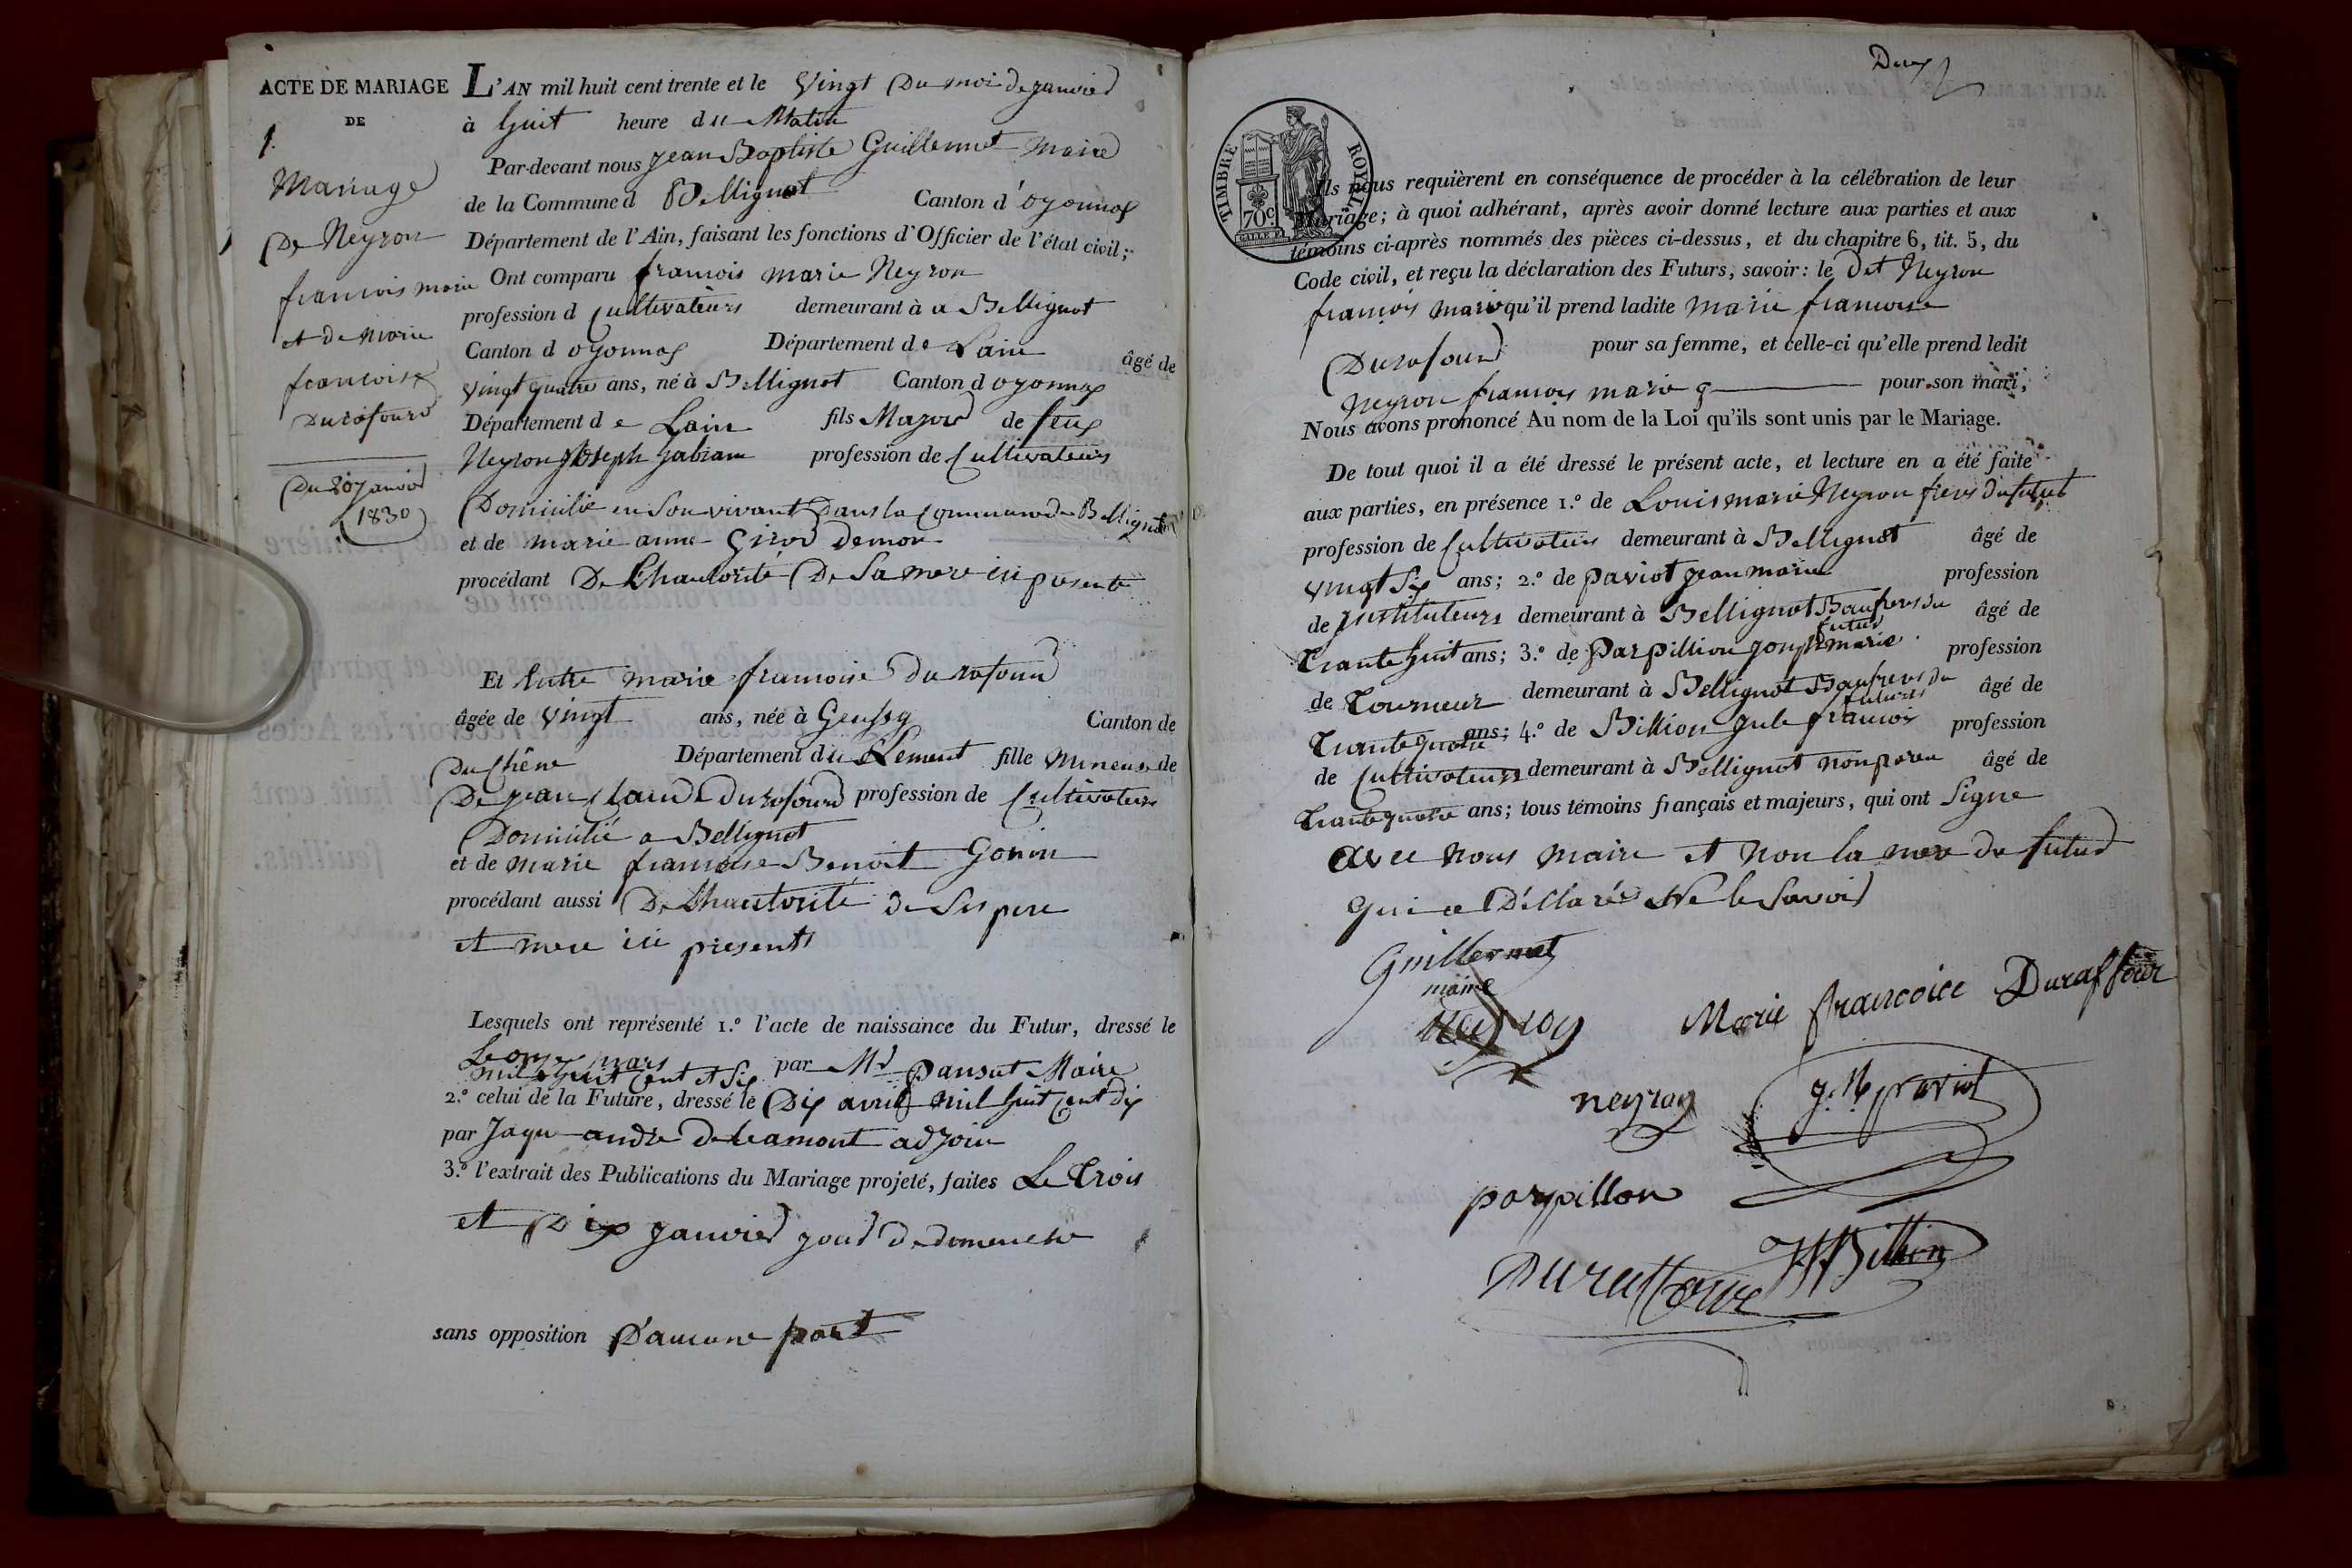 ACTE DE MARIAGE
DE
1.
Mariage
De Neyron
francois marie
et de marie
francoise
Durafourd
Du 20 Janvier
1830
L'AN mil huit cent trente et le Vingt Du moi de janvier
à huit heure du Matin
Par-devant nous jean Baptiste Guillermet Maire
de la Commune d Bellignat Canton d'oyonnax
Département de l'Ain, faisant les fonctions d'Officier de l'état civil;
Ont comparu francois marie Neyron
profession d Cultivateurs demeurant à a Bellignot
Canton d oyonnax Département de Lain âgé de
vingt quatre ans, né à Bellignot Canton d oyonnax
Département de Lain fils Major de feux
Neyron joseph fabiam profession de Cultivateurs
Domicilie en Son vivant Dans la Commune de Bellignot
et de marie anne Girod demon
procédant De Lhautorité De Sa mere ici presente
Et Entre marie francoise Durafourd
âgée de Vingt ans, née à Canton de
Du Chêne Département du Lement fille mineure de
De jean Claude Durafourd profession de Cultivateurs
Domicilié a Bellignot
et de marie francoise Benoit Gonin
procédant aussi De Lhautorité de Ses pere
et mere ici presents
Lesquels ont représenté 1.º l'acte de naissance du Futur, dressé le
Le onze mars
mil huit Cent et Six par Mr pansut Maire
2.º celui de la Future, dressé le Dix avril mil huit Cent dix
par Jaque andre adjoin
3.º l'extrait des Publications du Mariage projeté, faites Le Trois
et Dix janvier jour de domenche
sans opposition D'aucune part
Deux
TIMBRE ROYAL
70c
Ils nous requièrent en conséquence de procéder à la célébration de leur
Mariage; à quoi adhérant, après avoir donné lecture aux parties et aux
témoins ci-après nommés des pièces ci-dessus, et du chapitre 6, tit. 5, du
Code civil, et reçu la déclaration des Futurs, savoir: le dit Neyron
françois marie qu'il prend ladite marie francoise
Durafourd pour sa femme, et celle-ci qu'elle prend ledit
Neyron francois marie pour son mari,
Nous avons prononcé Au nom de la Loi qu'ils sont unis par le Mariage.
De tout quoi il a été dressé le présent acte, et lecture en a été faite
aux parties, en présence 1.º de Louis marie Neyron frere du futur
profession de Cultivateur demeurant à Bellignot âgé de
vingt Six ans; 2.º de paviot jean marie profession
de instituteurs demeurant à Bellignot Baufrere du âgé de
futur
Trante huit ans; 3.º de Parpillion joseph marie profession
de Tourneur demeurant à Bellignot Baufrere du âgé de
futurs
Trante quatre ans; 4.º de Billion jule francois profession
de Cultivateurs demeurant à Bellignot non paren âgé de
Trante quatre ans; tous témoins français et majeurs, qui ont Signe
avec nous maire et non la mere du futur
qui a Déllaré Ne le Savoir
Guillermet
maire
Neyron
Marie francoice Duraffour
neyron
j. M paviot
parpillon
Duraffour
JFBillion